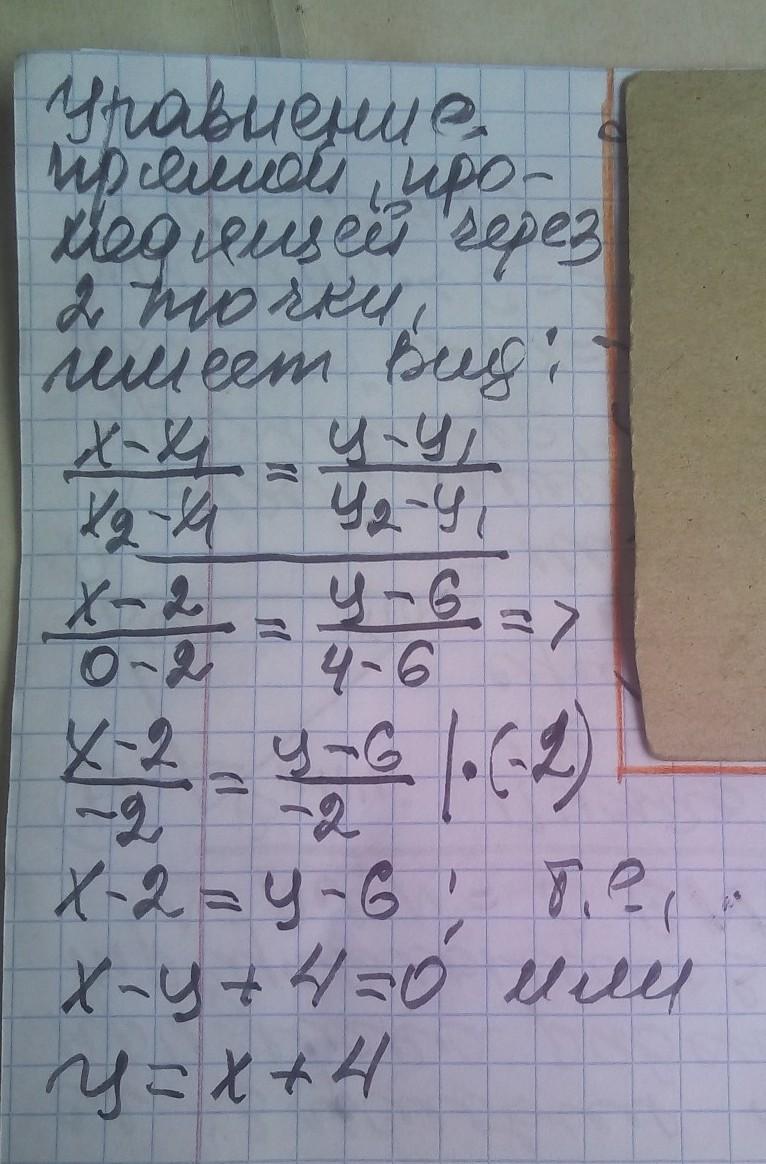 Уравнение
прямой, про-
ходящей через
2 точки,
имеет вид:
x-x₁/x₂-x₁ = y-y₁/y₂-y₁
x-2/0-2 = y-6/4-6 =>
x-2/-2 = y-6/-2 | · (-2)
x-2 = y-6 ; т.е.,
x-y+4=0 или
y=x+4